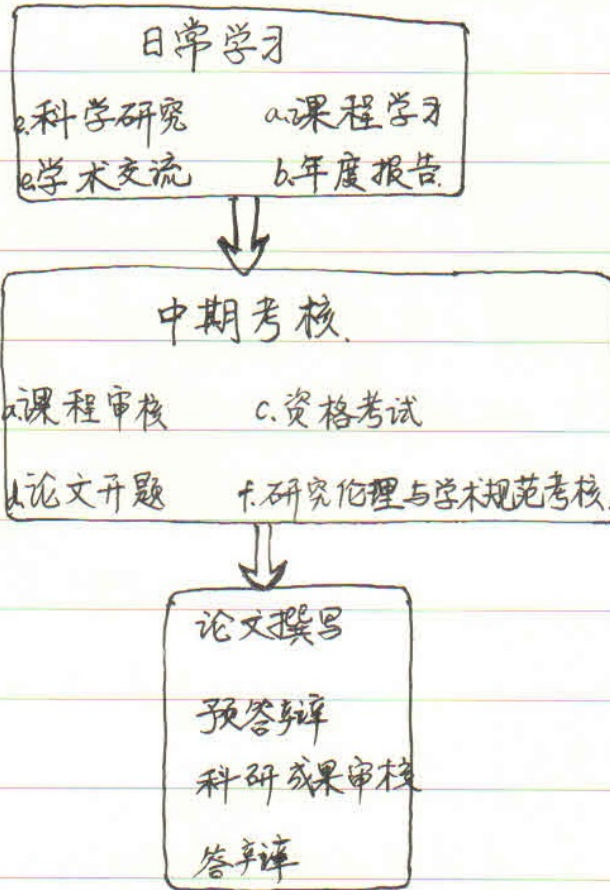 日常学习
e.科学研究 a.课程学习
e.学术交流 b.年度报告.
中期考核.
a.课程审核 c.资格考试
d.论文开题 f.研究伦理与学术规范考核.
论文撰写
预答辩
科研成果审核
答辩